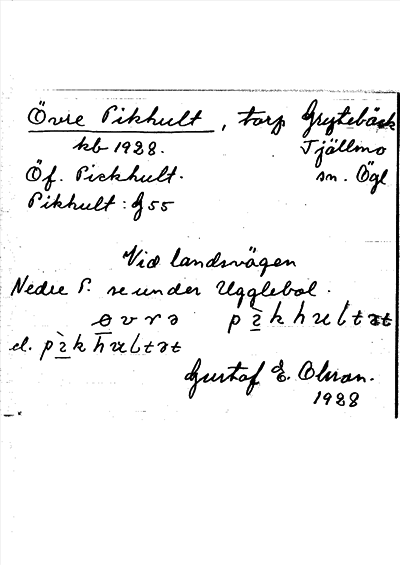 Övre Pikhult, torp Grytebäck
kb 1928. Tjällmo
Öf. Pickhult. sn. Ögl
Pikhult: G 55
Vid landsvägen
Nedre P. se under Ugglebol.
øvrə pìkhʉltət
el. pìkhʉltət
Gustaf E. Olsson.
1928